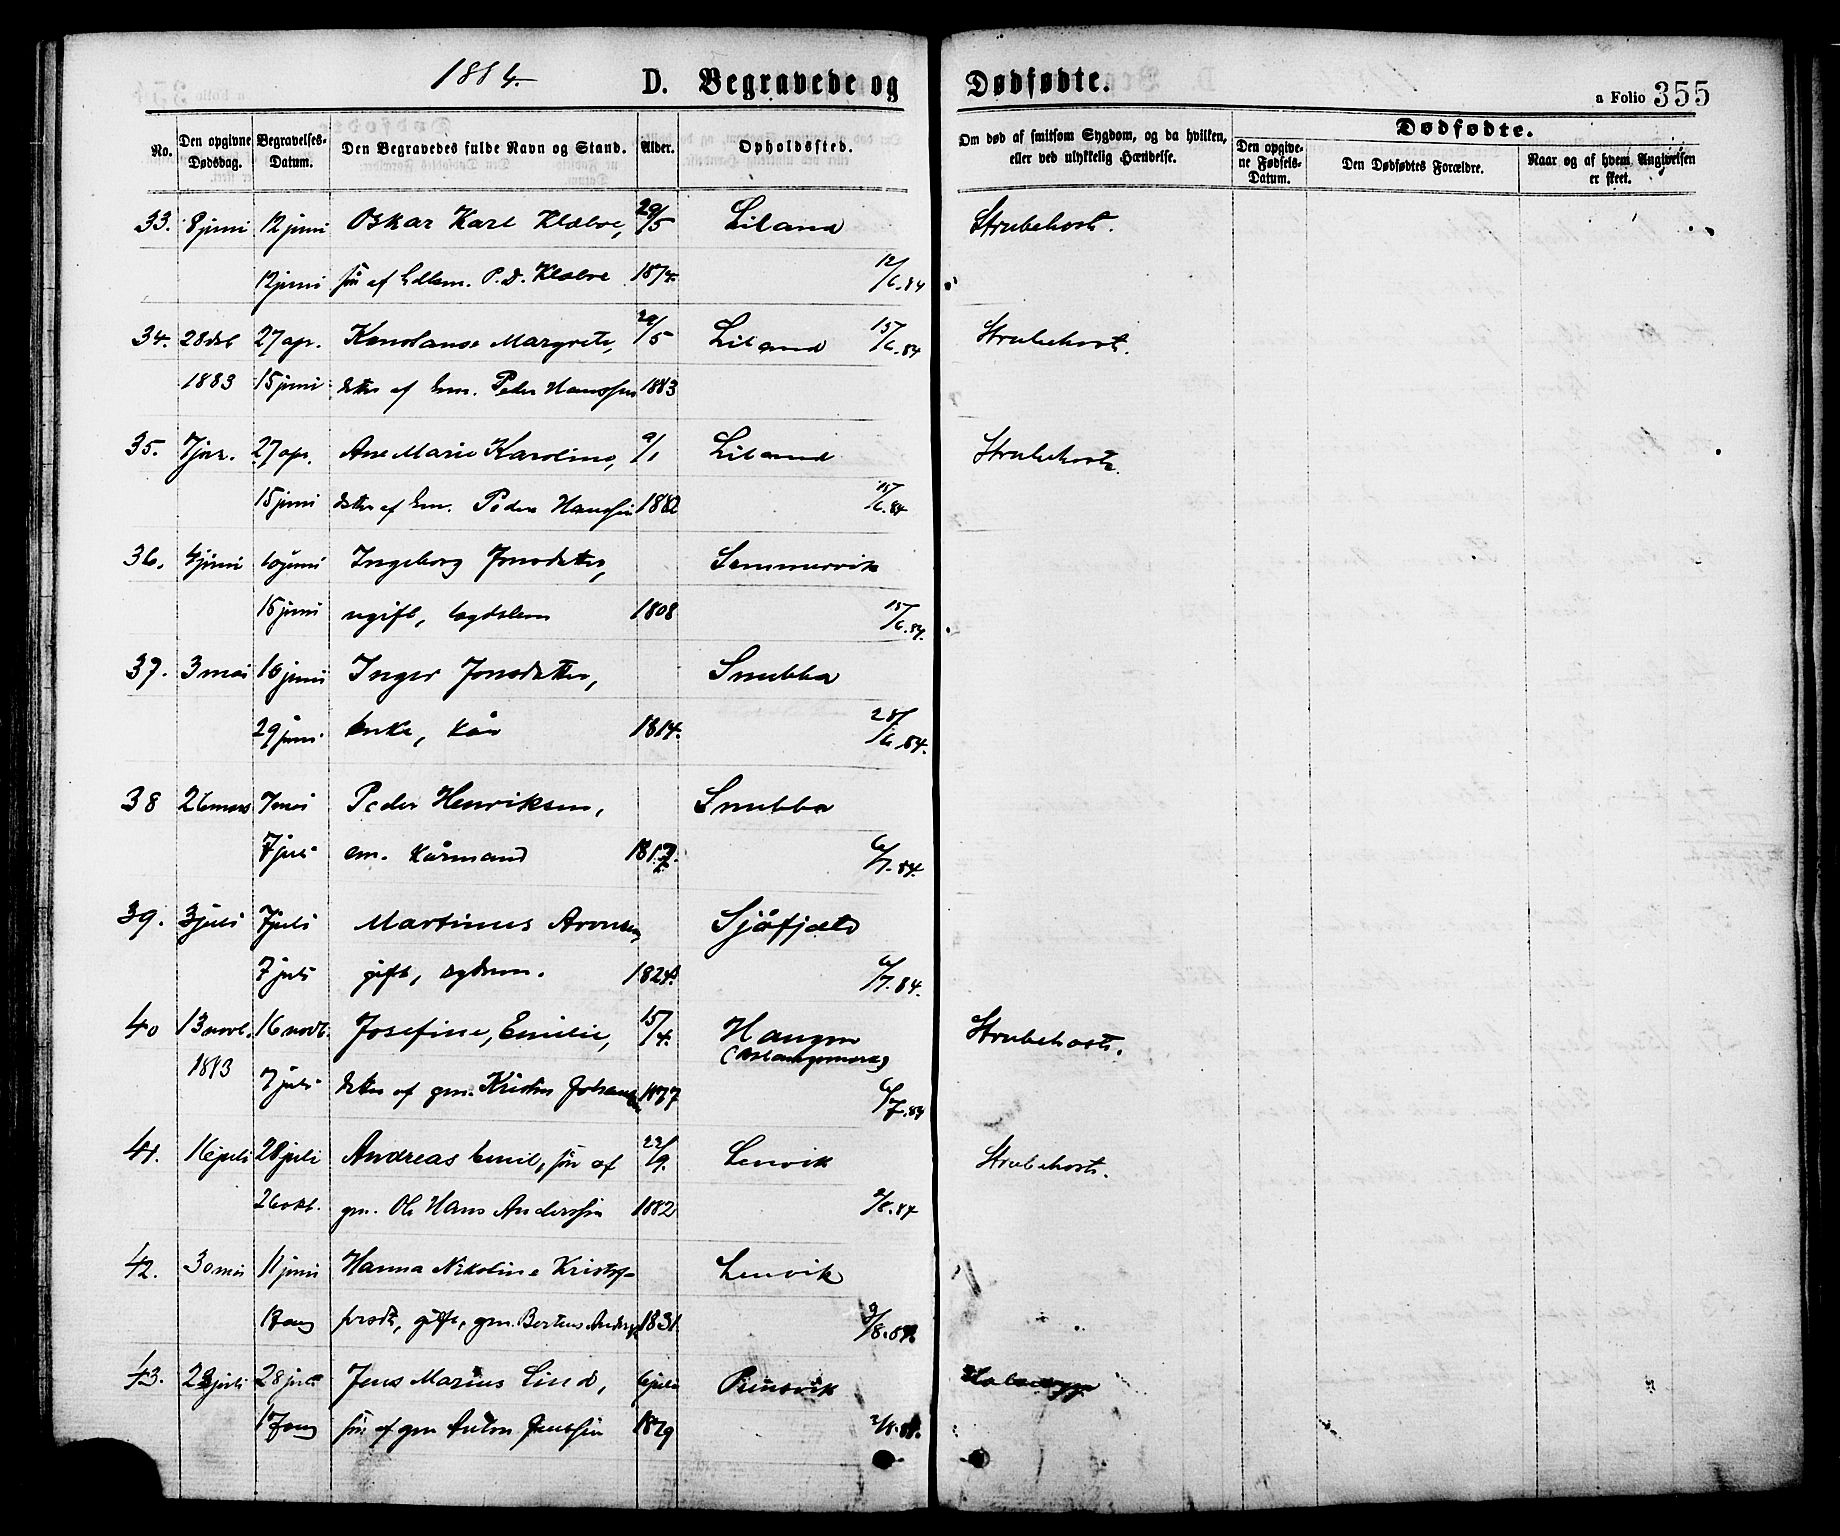 1884.
D. Begravede og Dødfødte.
a Folio 355
No. Den opgivne Dødsdag. Begravelses-Datum. Den Begravedes fulde Navn og Stand. Alder. Opholdssted. Om død af smitsom Sygdom, og da hvilken, eller ved ulykkelig Hændelse.
Dødfødte.
Den opgivne Fødsels-Datum. Den Dødfødtes Forældre. Naar og af hvem Angivelsen er skeet.
33. 8 juni 12 juni Oskar Karl Klæboe, 29/5 Liland Strubehoste.
12 juni søn af P. D. Klæboe 1874. 12/6.84
34. 28 dcb 27 apr. Konstanse Margrete, 29/5 Liland 15/6.84 Strubehoste.
1883 15 juni datter af em. Peder Hanssen 1883
35. 7 jan. 27 apr. Ane Marie Karoline, 9/1 Liland Strubehoste.
15 juni datter af em. Peder Hanssen 1882 15/6.84
36. 4 juni 10 juni Ingeborg Jonsdatter, Sommervik
15 juni ugift, lægdslem 1808 15/6.84.
37. 3 mai 10 juni Inger Jonsdatter, Snubba
29 juni enke, kår 1814. 28/6.84.
38 26 mars 7 mai Peder Henriksen, Snubba
7 juli em. kårmand 1817. 6/7.84.
39. 3 juli 7 juli Martinus Aronsen Sjåfjæld
7 juli gift, 1824. 6/7.84.
40 13 novb. 16 novb. Josefine, Emilie, 15/4. Haugen Strubehoste.
1883 7 juli datter af gm. Kristen 1877 6/7.84
41. 16 juli 28 juli Andreas Emil, søn af 22/9. Lenvik Strubehoste.
26 okt. gm. Ole Hans Anderssen 1882 9/8.84
42. 30 mai 11 juni Hanna Nikoline Kristof- Lenvik
fersdt, gift, gm. Berteus 1831. 9/8.84.
43. 23 juli 28 juli Jens Marius Lind, 6 juli Prinsvik
17 aug søn af gm Anton Jenssen 1879